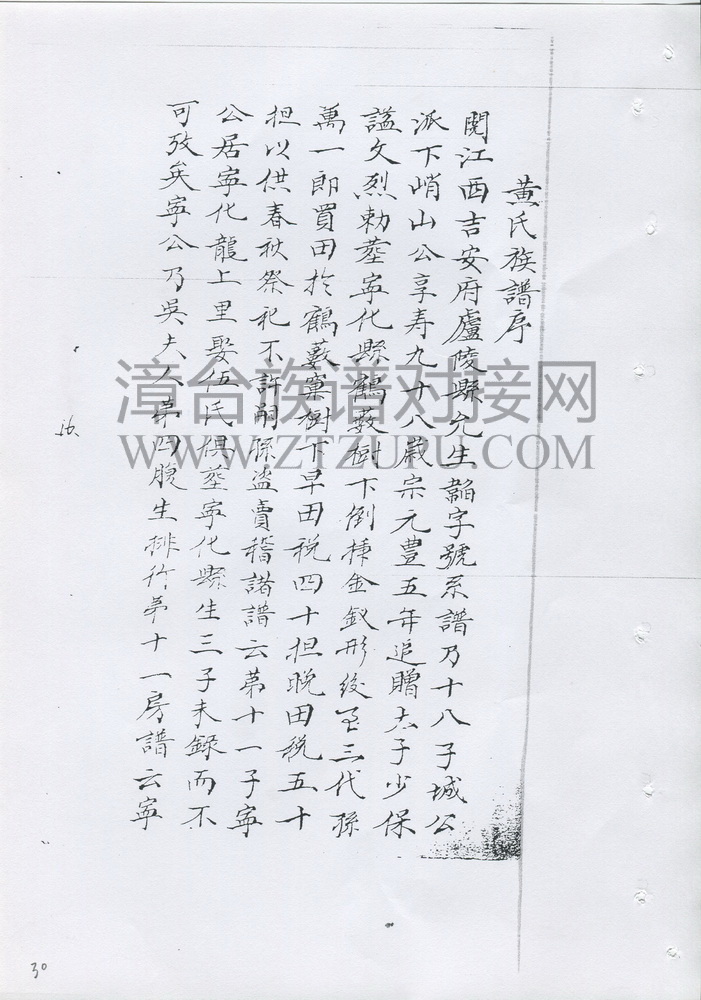 黃氏族譜序
閱江西吉安府廬陵縣允生韶字號系譜乃十八子城公
派下峭山公享寿九十八歲宗元豊五年追贈太子少保
謚文烈勅塟寧化縣鶴薮樹下倒插金釵形後至三代孫
萬一郎買田於鶴薮窠樹下早田税四十担晚田税五十
担以供春秋祭祀不許嗣孫盜賣稽諸譜云第十一子寧
公居寧化龍上里娶伍氏俱塟寧化縣生三子未録而不
可攷矣寧公乃吳夫人第四腹生排行第十一房譜云寧
漳台族谱对接网
WWW.ZTZUPU.COM
30